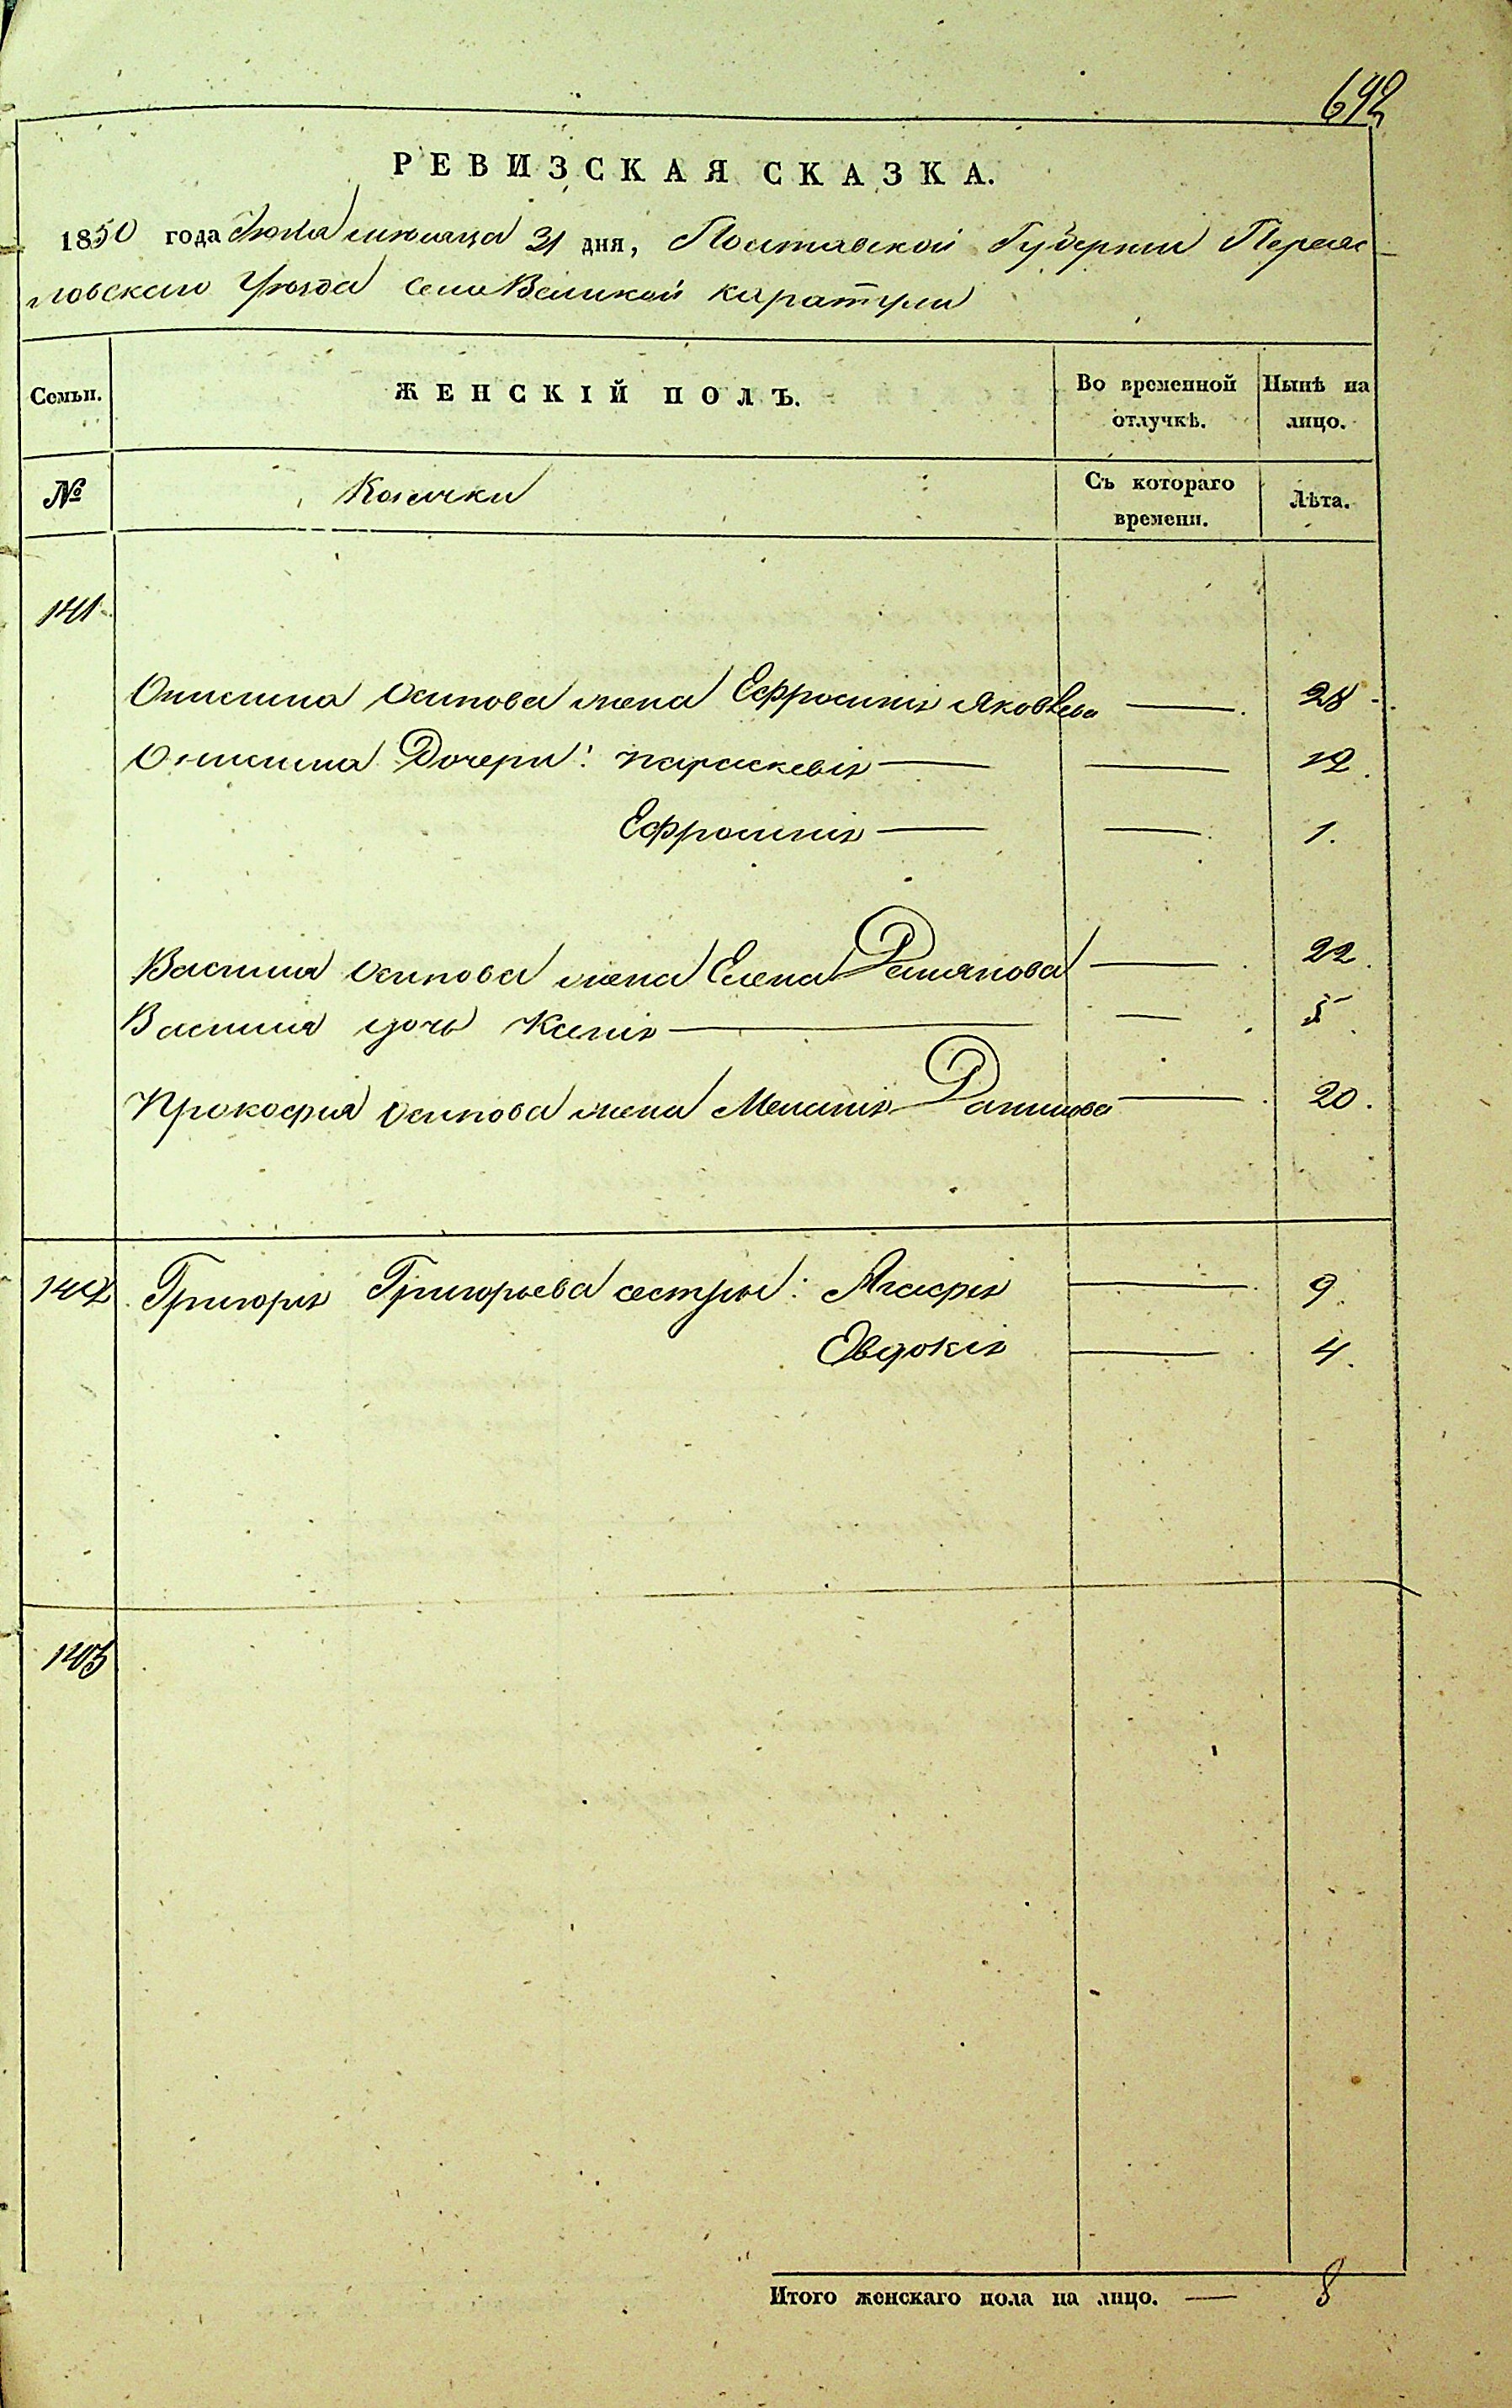 642
РЕВИЗСКАЯ СКАЗКА.
1850 года Июля мѣсяца 31 дня, Полтавской Губерніи Переяс-
ловскаго Уѣзда села Великой каратули
Семьи. ЖЕНСКІЙ ПОЛЪ. Во временной отлучкѣ. Нынѣ на лицо.
№ Козачки Съ котораго времени. Лѣта.
141
Онисима Осипова жена Ефросинія Яковлева — 28
Онисима Дочери: параскевія — — 12.
Ефросинія — — 1.
Василія Осипова жена Елена Дамянова — 22.
Василія дочь Ксенія — — 5.
Прокофія Осипова жена Меланія Данилова — 20.
142 Григорія Григорьева сестры: Агафія — 9.
Овдокія — 4.
143
Итого женскаго пола на лицо. — 8